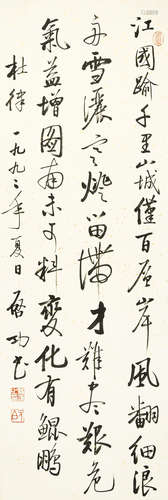 江國踰千里山城僅百層岸風翻細浪
舟雪灑寒燈留滯才難盡艱危
氣益增圖南未可料變化有鯤鵬
杜律一九九二年夏日啟功書